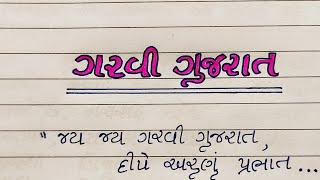 ગરવી ગુજરાત
" જય જય ગરવી ગુજરાત,
દીપે અરુણું પ્રભાત...